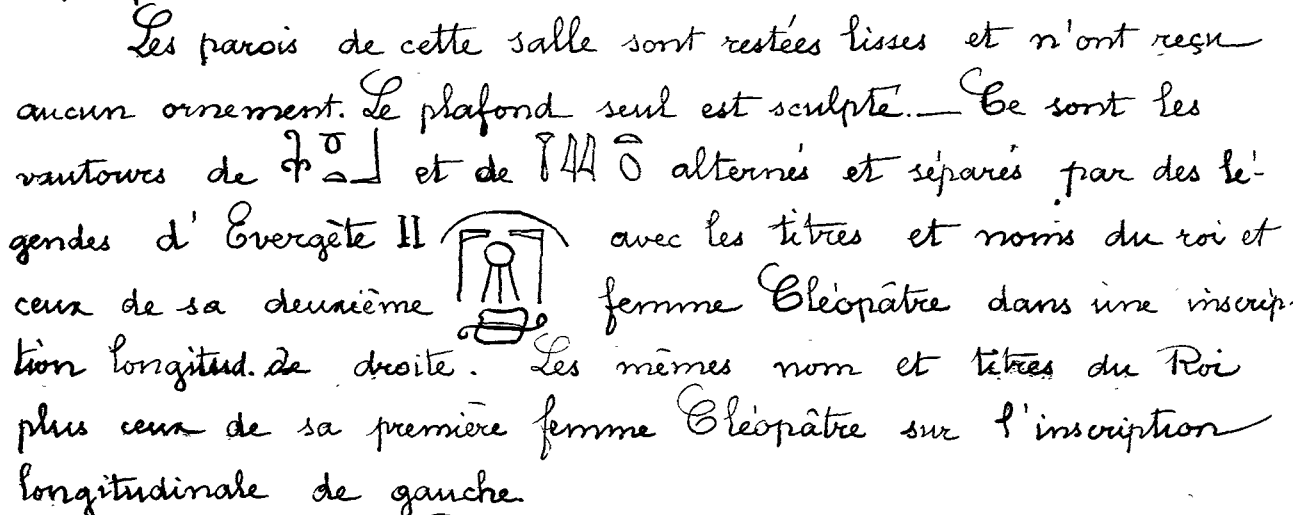 Les parois de cette salle sont restées lisses et n'ont reçu
aucun ornement. Le plafond seul est sculpté. — Ce sont les
vautours de et de alternés et séparés par des lé-
gendes d'Evergète II avec les titres et noms du roi et
ceux de sa deuxième femme Cléopâtre dans une inscrip-
tion longitud. de droite. Les mêmes nom et titres du Roi
plus ceux de sa première femme Cléopâtre sur l'inscription
longitudinale de gauche.